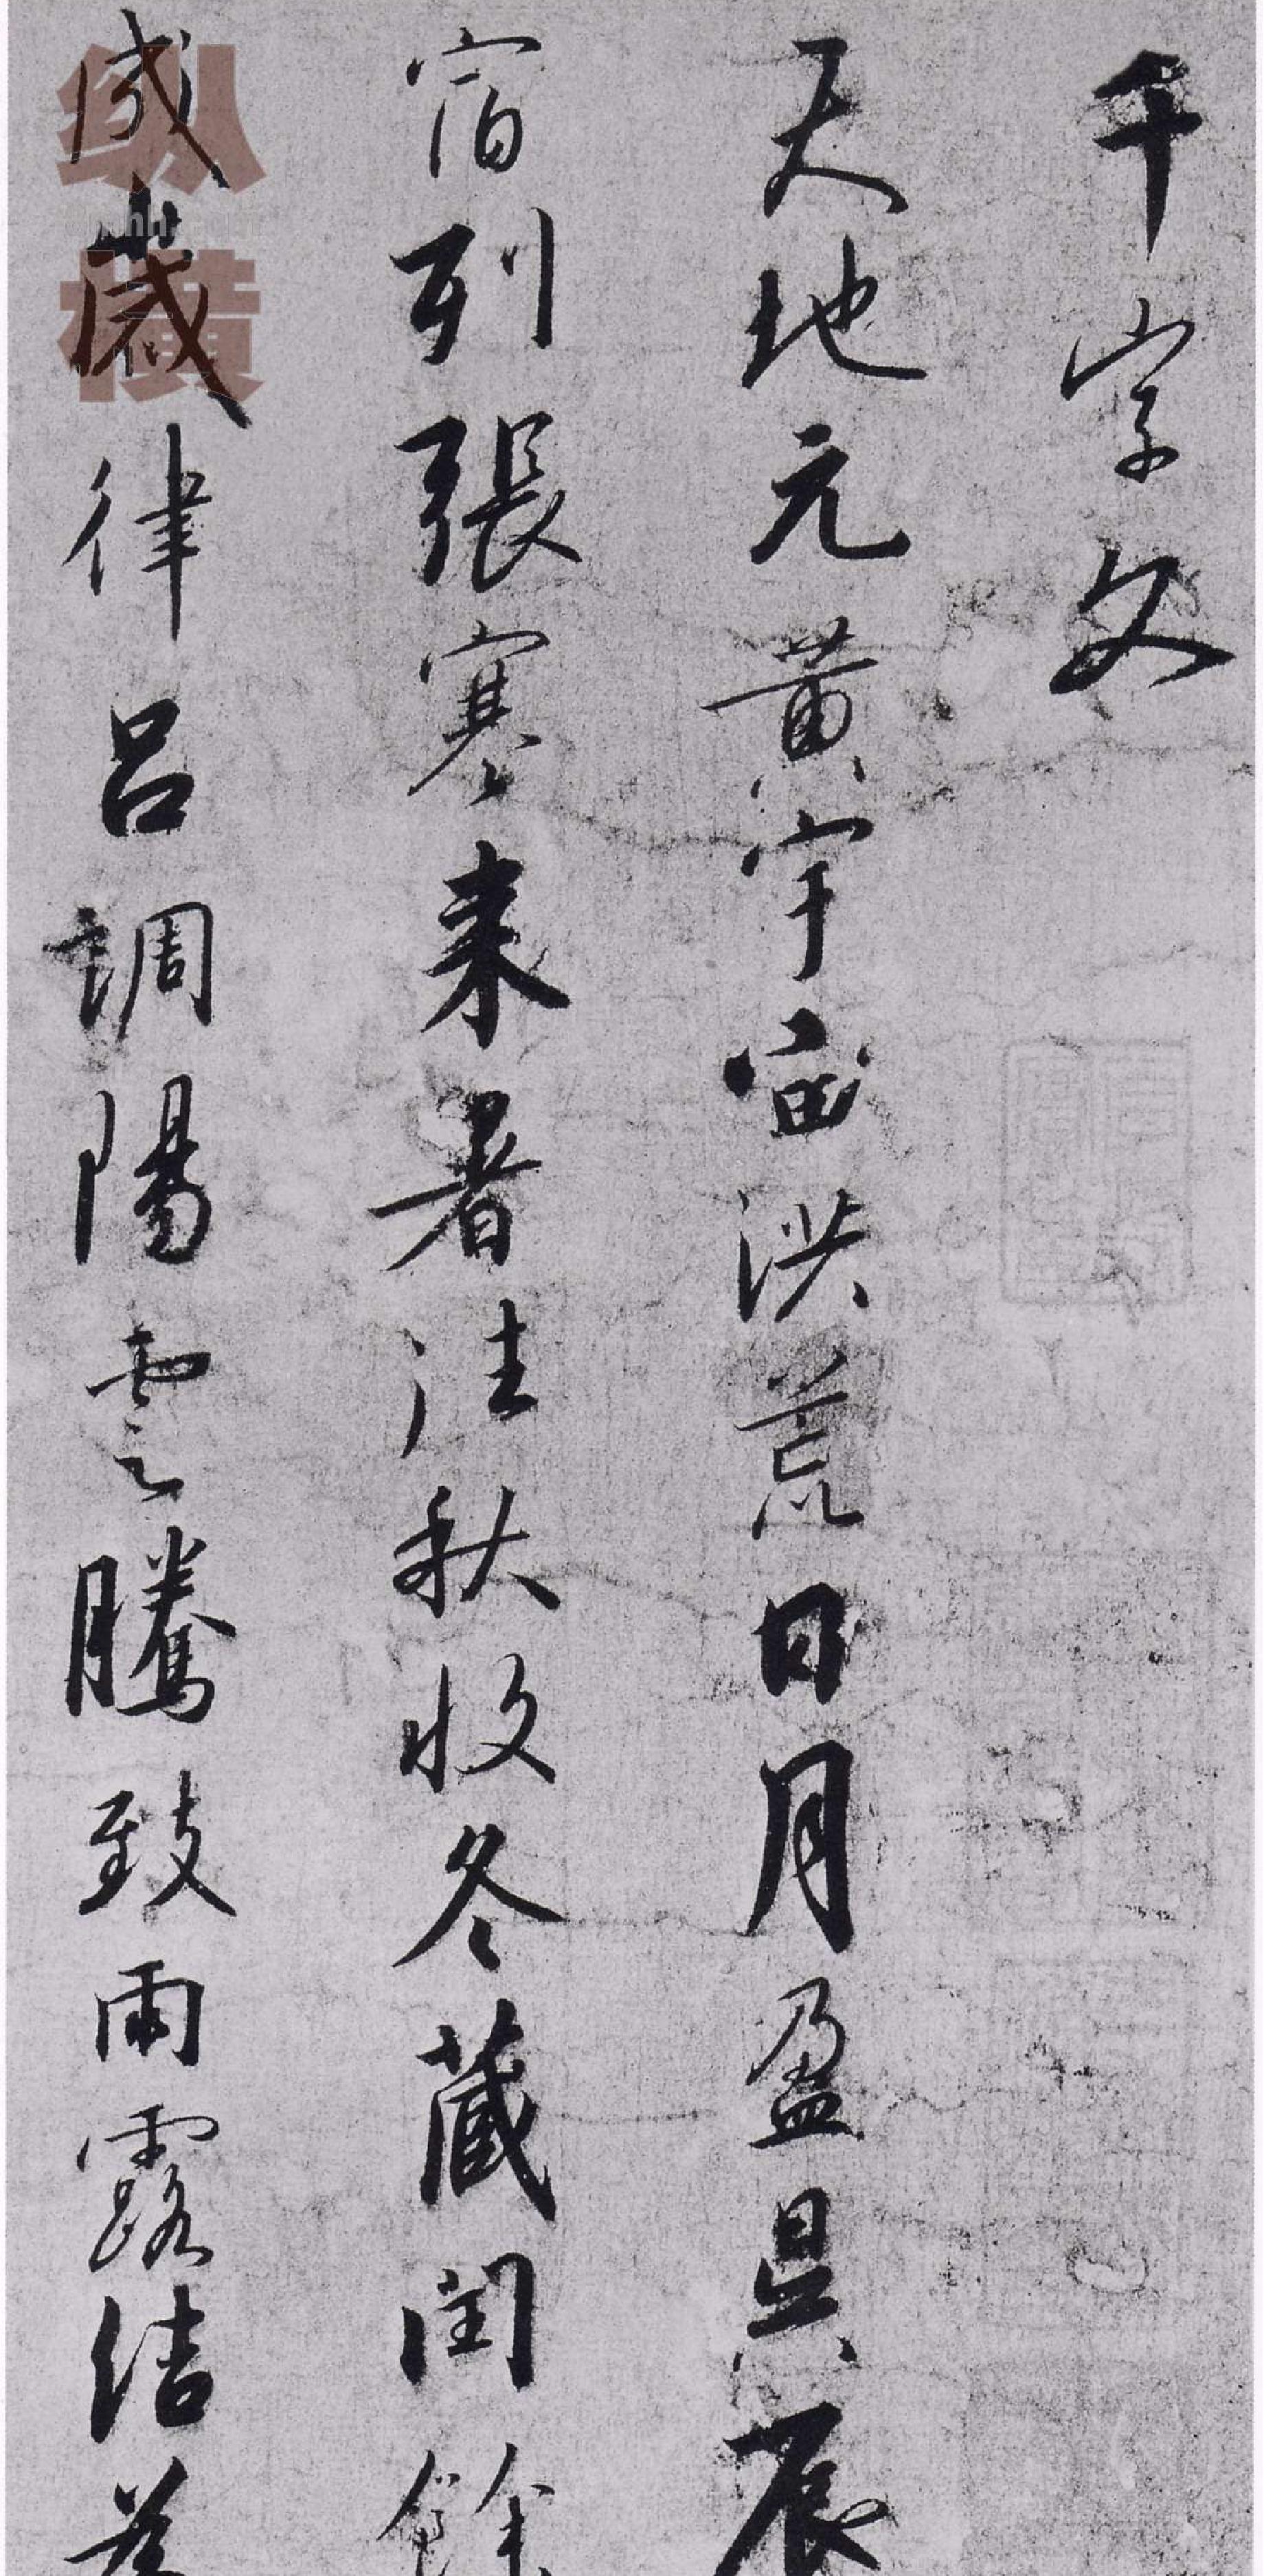 千字文
天地元黄宇宙洪荒日月盈昃辰
宿列張寒来暑往秋收冬藏閏餘
成歲律吕調陽雲騰致雨露結為
纵横